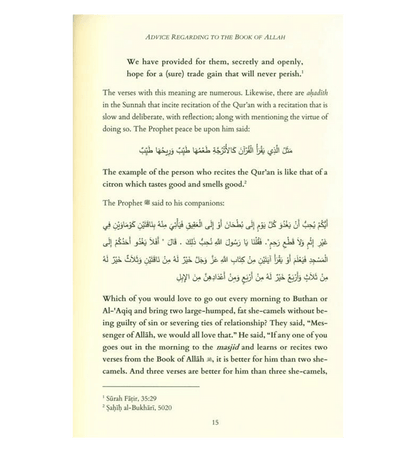 ADVICE REGARDING TO THE BOOK OF ALLAH
We have provided for them, secretly and openly,
hope for a (sure) trade gain that will never perish.¹
The verses with this meaning are numerous. Likewise, there are aḥadīth
in the Sunnah that incite recitation of the Qur'an with a recitation that is
slow and deliberate, with reflection; along with mentioning the virtue of
doing so. The Prophet peace be upon him said:
مَثَلُ الَّذِي يَقْرَأُ الْقُرْآنَ كَالأُتْرُجَّةِ طَعْمُهَا طَيِّبٌ وَرِيحُهَا طَيِّبٌ
The example of the person who recites the Qur'an is like that of a
citron which tastes good and smells good.²
The Prophet ﷺ said to his companions:
أَيُّكُمْ يُحِبُّ أَنْ يَغْدُوَ كُلَّ يَوْمٍ إِلَى بُطْحَانَ أَوْ إِلَى الْعَقِيقِ فَيَأْتِيَ مِنْهُ بِنَاقَتَيْنِ كَوْمَاوَيْنِ فِي
غَيْرِ إِثْمٍ وَلاَ قَطْعِ رَحِمٍ". فَقُلْنَا يَا رَسُولَ اللهِ نُحِبُّ ذَلِكَ . قَالَ " أَفَلاَ يَغْدُو أَحَدُكُمْ إِلَى
الْمَسْجِدِ فَيَعْلَمَ أَوْ يَقْرَأَ آيَتَيْنِ مِنْ كِتَابِ اللهِ عَزَّ وَجَلَّ خَيْرٌ لَهُ مِنْ نَاقَتَيْنِ وَثَلاَثٌ خَيْرٌ لَهُ
مِنْ ثَلاَثٍ وَأَرْبَعٌ خَيْرٌ لَهُ مِنْ أَرْبَعٍ وَمِنْ أَعْدَادِهِنَّ مِنَ الإِبِلِ
Which of you would love to go out every morning to Buthan or
Al-'Aqiq and bring two large-humped, fat she-camels without be-
ing guilty of sin or severing ties of relationship? They said, "Mes-
senger of Allāh, we would all love that." He said, "If any one of you
goes out in the morning to the masjid and learns or recites two
verses from the Book of Allāh ﷻ, it is better for him than two she-
camels. And three verses are better for him than three she-camels,
¹ Sūrah Fāṭir, 35:29
² Ṣaḥīḥ al-Bukhārī, 5020
15